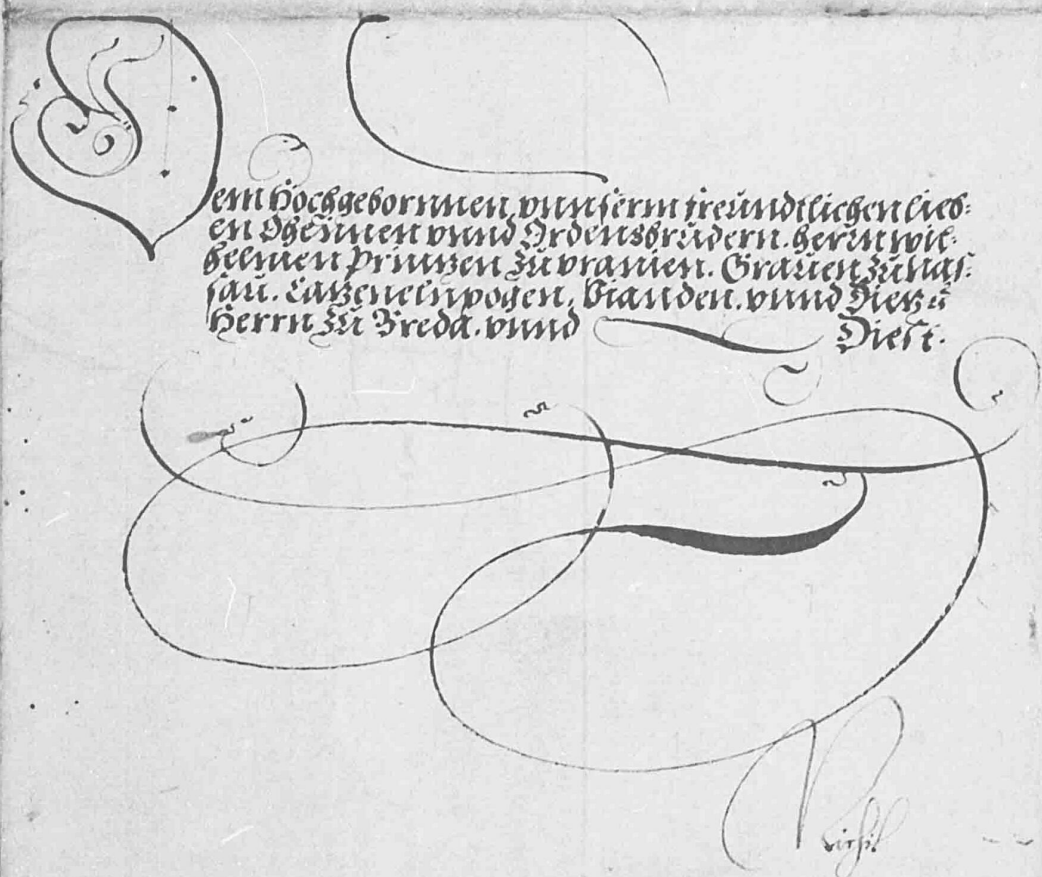 Dem Hochgebornnen vnnserm freündtlichen lieb-
en Oheimen vnnd Ordensbrüdern. herrn wil-
helmen Printzen zu vranien. Grauen zu nas-
sau. Catzenelnpogen, Vianden. vnnd Dietz ꝛc
Herrn zu Breda. vnnd Diest.